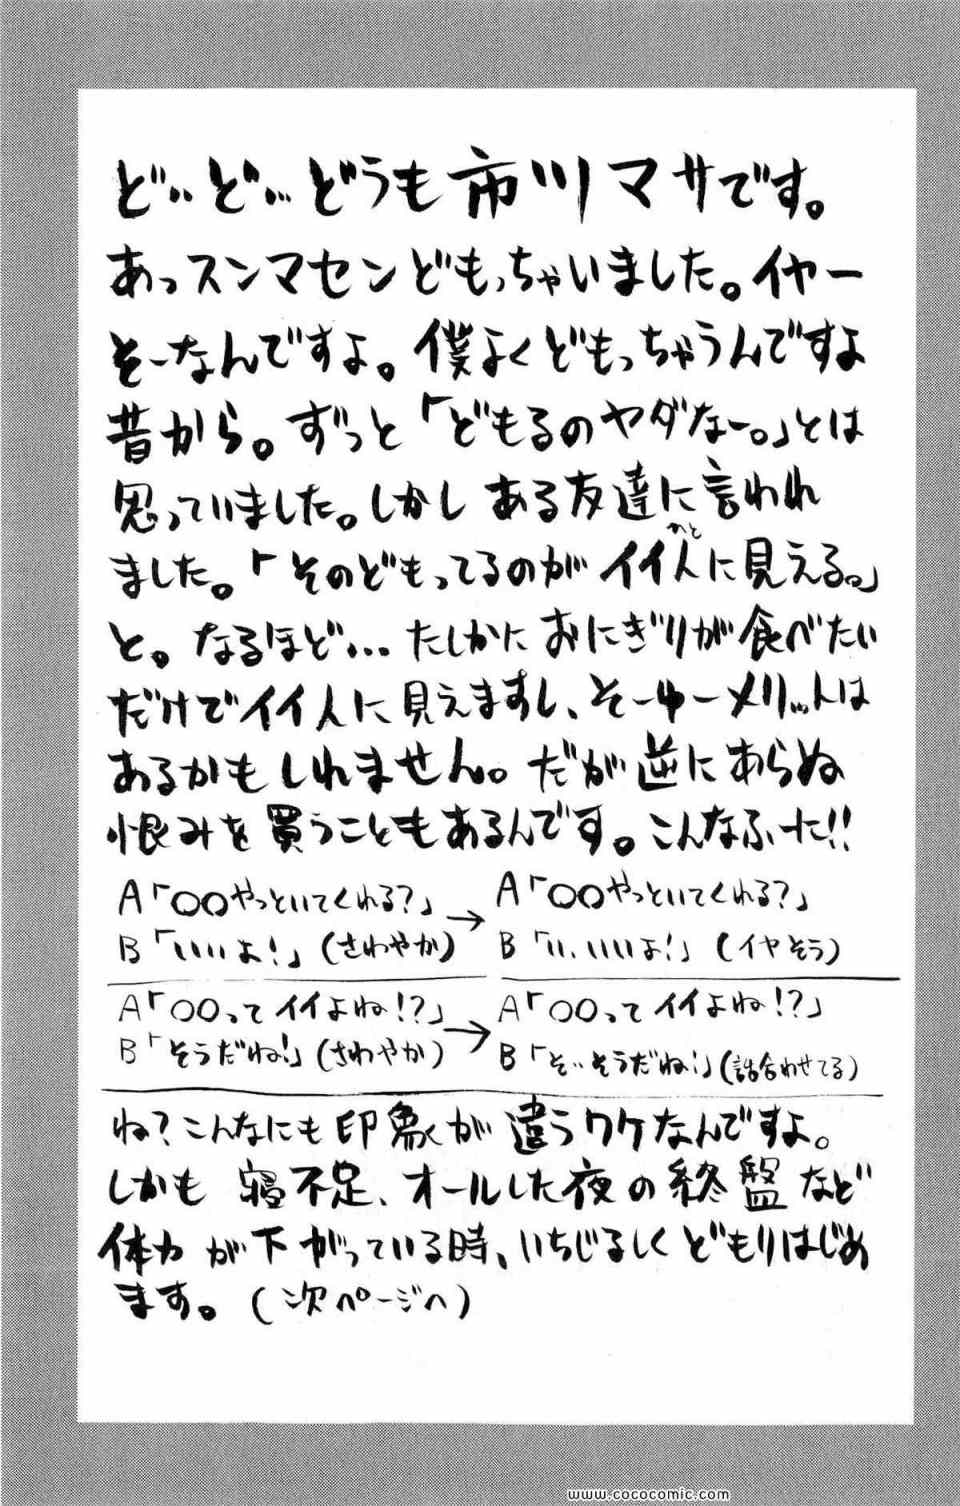 ど‥ど…どうも市川マサです。
あっスンマセンどもっちゃいました。イヤー
そーなんですよ。僕よくどもっちゃうんですよ
昔から。ずっと「どもるのヤダなー。」とは
思っていました。しかしある友達に言われ
ました。「そのどもってるのがイイ人に見える。」
と。なるほど…たしかにおにぎりが食べたい
だけでイイ人に見えますし、そーゆーメリットは
あるかもしれません。だが逆にあらぬ
恨みを買うこともあるんです。こんなふーに!!
A「〇〇やっといてくれる?」
B「いいよ!」(さわやか)
→
A「〇〇やっといてくれる?」
B「い、いいよ!」(イヤそう)
A「〇〇ってイイよね!?」
B「そうだね!」(さわやか)
→
A「〇〇ってイイよね!?」
B「そ‥そうだね!」(話合わせてる)
ね?こんなにも印象が違うワケなんですよ。
しかも寝不足、オールした夜の終盤など
体力が下がっている時、いちじるしくどもりはじめ
ます。(次ページへ)
www.cococomic.com